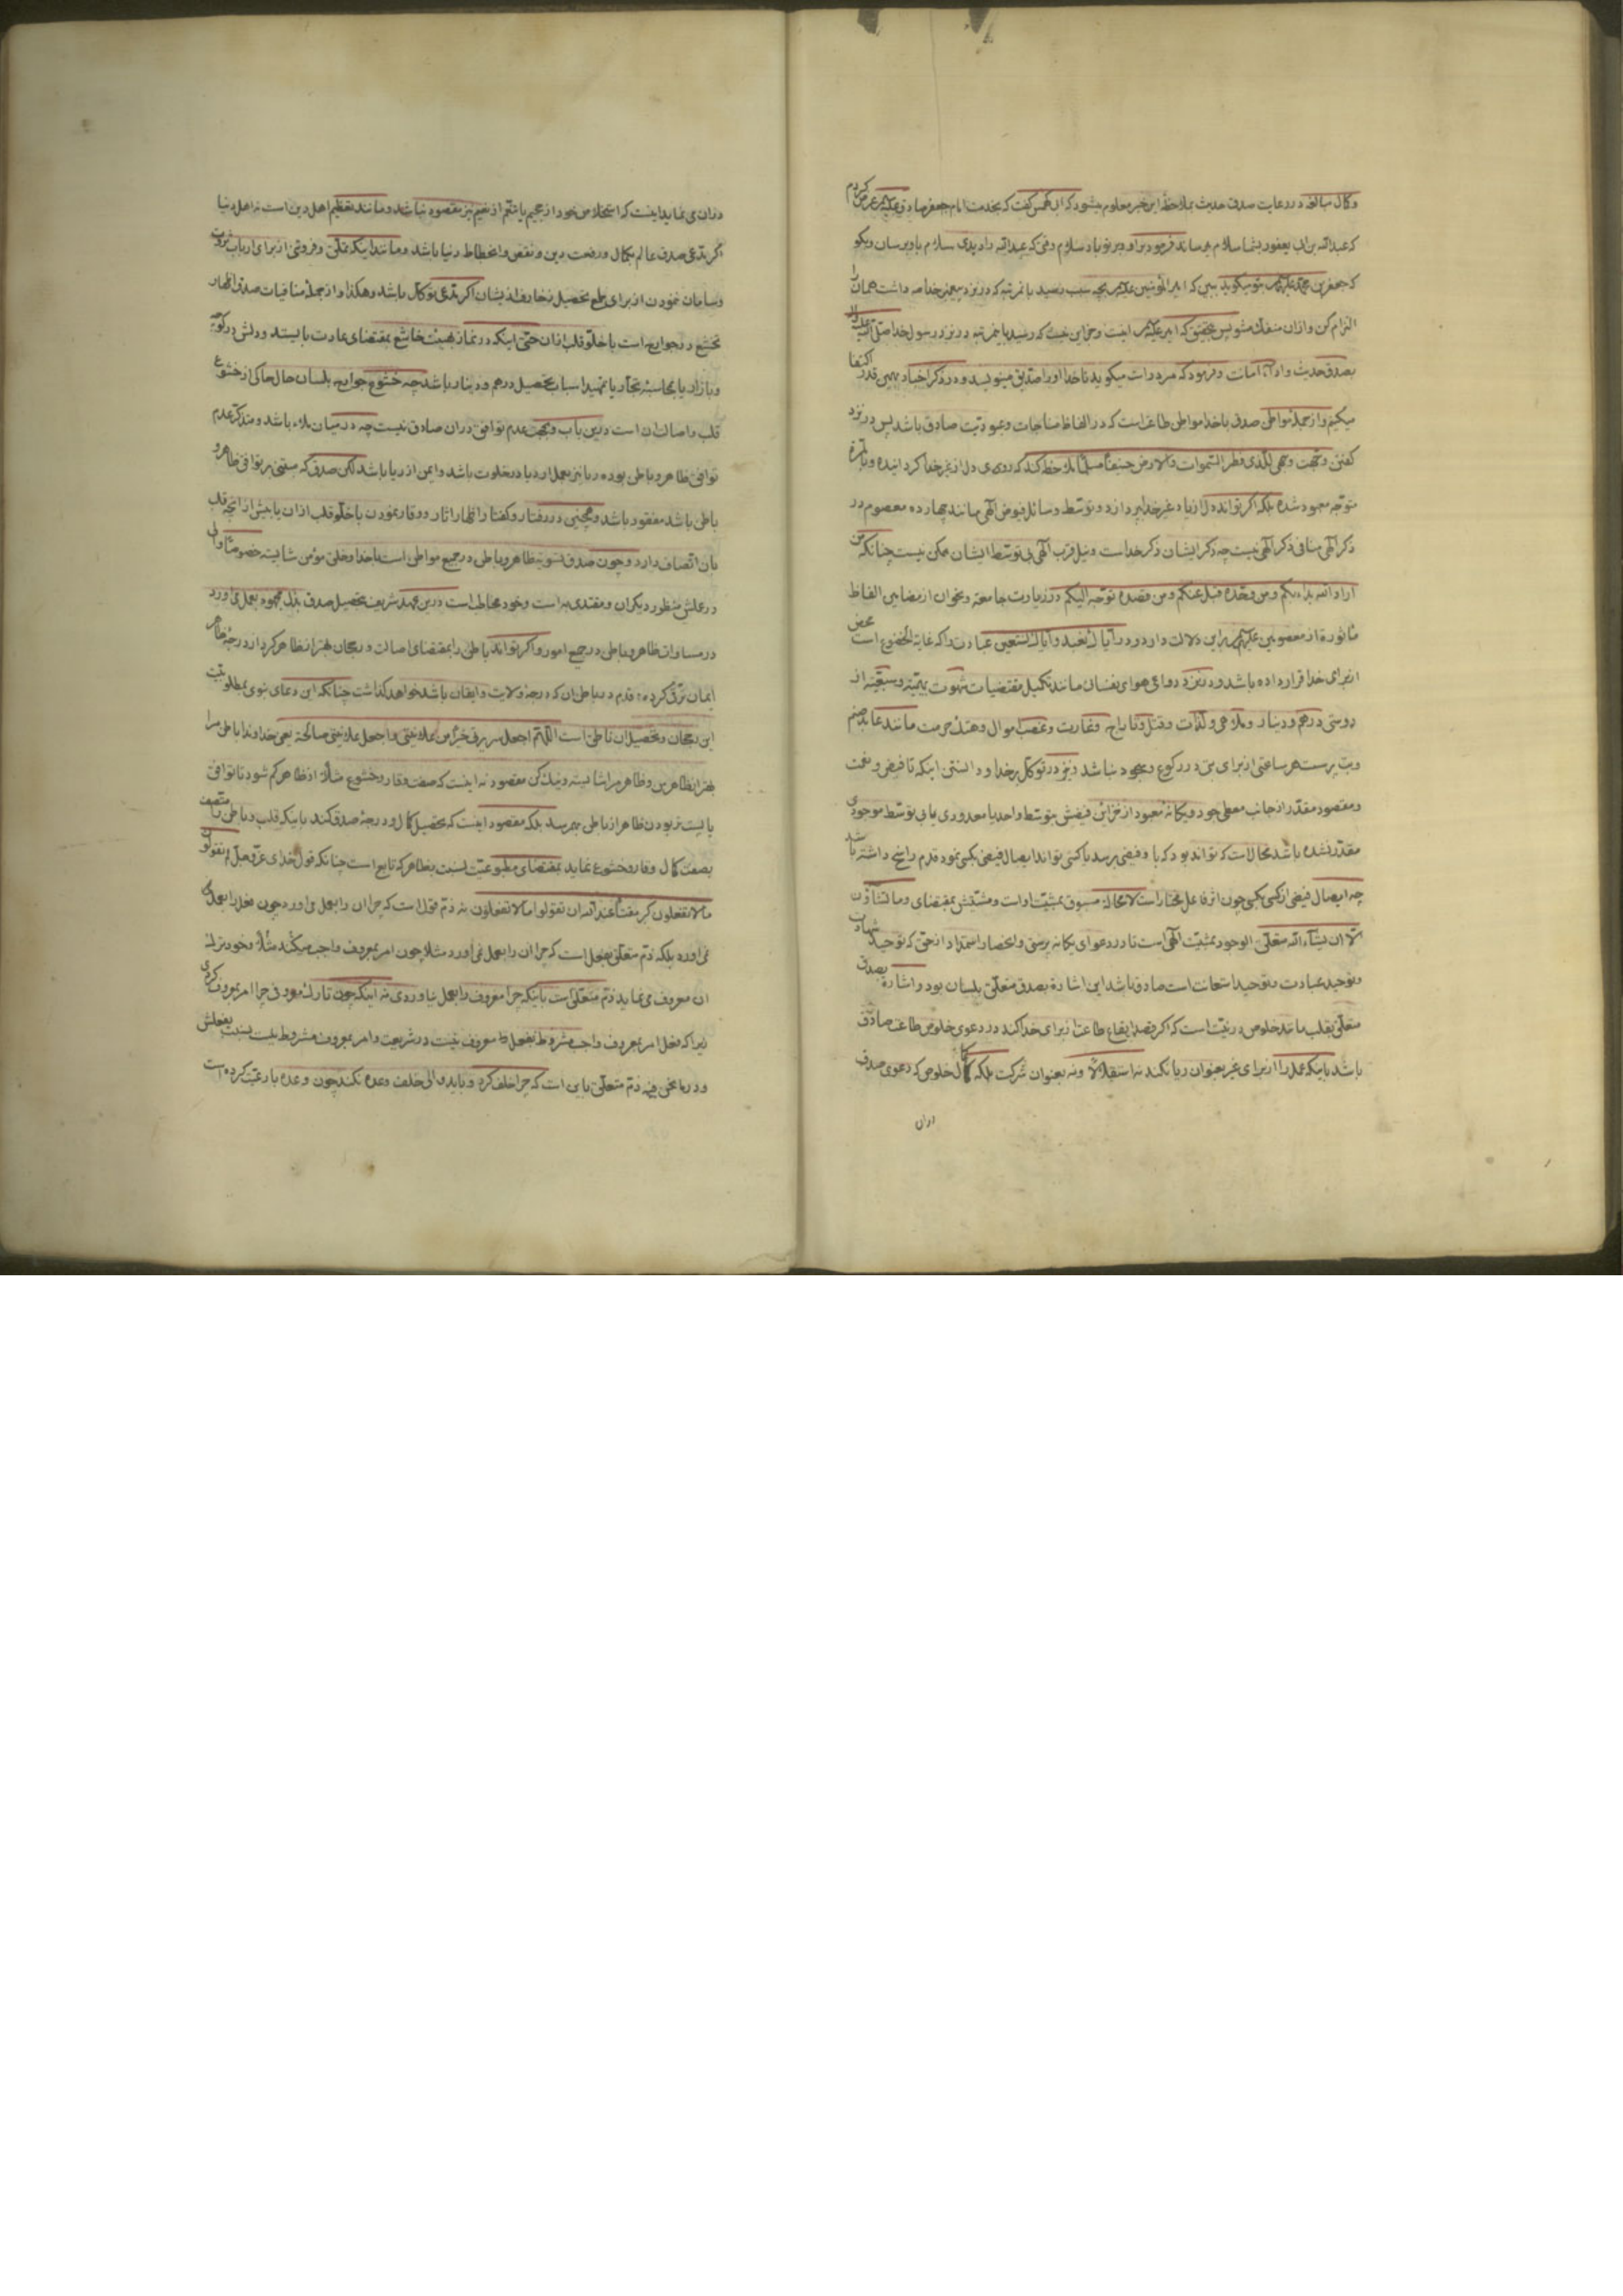 وکمال مبالغه در رعایت صدق حدیث بملاحظهٔ این خبر معلوم میشود که ابی کهمس گفت که بخدمت امام جعفر صادق علیه السلام عرض کردم
که عبدالله بن ابی یعفور بشما سلام میرساند فرمود بر او و بر تو باد سلام وقتی که عبدالله را دیدی سلام باو برسان وبگو
که جعفر بن محمد علیهما السلام بتو میگوید ببین که امیر المؤمنین علیه السلام بچه سبب رسید بان مرتبه که در نزد پیغمبر خدا صه داشت همان را
التزام کن وازان منفک مشو پس بتحقیق که امیر علیه السلام رسید بان مرتبه در نزد رسول خدا صلی الله علیه واله
بصدق حدیث واداء امانت وفرمود که مرد راست میگوید تا خدا او را صدیق مینویسد ودر ذکر اخبار بهمین قدر اکتفا
میکنیم واز جمله مواطن صدق با خدا مواطن طاعت است که در الفاظ مناجات وعبودیت صادق باشد پس در نزد
گفتن وجهت وجهی للذی فطر السموات والارض حنیفا مسلما ملاحظه کند که روی دل از غیر خدا گردانیده وبالمره
متوجه معبود شده بلکه اگر تواند دل از یاد غیر خدا بپردازد وتوسط وسائل فیوض الهی مانند چهارده معصوم در
ذکر الهی منافی ذکر الهی نیست چه ذکر ایشان ذکر خداست ونیل قرب الهی بی توسط ایشان ممکن نیست چنانکه من
اراد الله بدا بکم ومن وحده قبل عنکم ومن قصده توجه الیکم در زیارت جامعه وبخوان از مضامین الفاظ
ماثوره از معصومین علیهم السلام براین دلالت دارد ودر ایاک نعبد وایاک نستعین عبادت را که غایة الخضوع است محض
از برای خدا قرار داده باشد ودر نزد دواعی هوای نفسان مانند تکمیل مقتضیات شهوت بهیمیه وسبعیه از
دوستی درهم ودینار وملاهی ولذات وقتل وتاراج وغارت وغصب اموال وهتک حرمت مانند عابد صنم
وبت پرست هر ساعتی از برای بتی در رکوع وسجود نباشد ونیز در توکل بر خدا ودانستن اینکه تا فیض ونعمت
ومقصود مقدر از جانب معطی جود ویگانه معبود از خزاین فیضش بتوسط واحد یا معدودی یا بی توسط موجودی
مقدر نشده باشد محالست که تواند بود که باو فیضی برسد یا کسی تواند ایصال فیضی بکسی نمود قدم راسخ داشته باشد
چه ایصال فیض از کسی بکسی چون اثر فاعل مختار است لا محاله مسبوق بمشیت او است ومشیتش بمقتضای وما تشاؤن
الا ان یشاء الله متعلق الوجود بمشیت الهی است تا در دعوای یگانه پرستی وانحصار استمداد از حق که توحید شهادت
وتوحید عبادت وتوحید استعانت است صادق باشد این اشاره بصدق متعلق بلسان بود واشاره بصدق
متعلق بقلب مانند خلوص در نیت است که اگر قصد ایقاع طاعت از برای خدا کند در دعوی خلوص طاعت صادق
باشد باینکه عمل را از برای غیر بعنوان ریا نکند نه استقلالا ونه بعنوان شرکت بلکه کمال خلوص که دعوی صدق
دران
دران می نماید اینست که استخلاص خود از جحیم یا تنعم از نعیم نیز مقصود نباشد ومانند تعظیم اهل دین است نه اهل دنیا
گر مدعی صدق عالم بکمال ورفعت دین ونقص وانحطاط دنیا باشد ومانند اینکه تملق وفروتنی از برای ارباب ثروت
وسامان نمودن از برای طمع تحصیل زخارف از یشان اگر مدعی توکل باشد وهکذا واز جمله منافیات صدق اظهار
تخشع در جوارح است با خلو قلب ازان حتی اینکه در نماز بهیئت خاشع بمقتضای عبارت بایستد ودلش در کوچه
وبازار یا بمحاسبه تجار یا تمهید اسباب تحصیل درهم ودینار باشد چه خشوع جوارح بلسان حال حاکی از خشوع
قلب واصالت ان است درین باب وبجهت عدم توافق دران صادق نیست چه در میان ملاء باشد ومتذکر عدم
توافق ظاهر وباطن بوده ریا نیز بعمل آرد یا در خلوت باشد وایمن از ریا باشد لکن صدق که مبتنی بر توافق ظاهر و
باطن باشد مفقود باشد وهمچنین در رفتار وگفتار اظهار اثار ووقار نمودن با خلو قلب ازان یا بیش از انچه قلب
بان اتصاف دارد وچون صدق تسویه ظاهر وباطن در جمیع مواطن است با خدا وخلق مؤمن شایسته خصوصا والی
در عملش منظور دیگران ومقتدی به است وخود مخاطب است درین عهد شریف بتحصیل صدق بذل مجهود بعمل می اورد
در مساوات ظاهر وباطن در جمیع امور واگر تواند باطن را بمقتضای اصالت ورجحان بهتر از ظاهر کرد از درجهٔ ظاهر
ایمان ترقی کرده قدم در باطن ان که درجهٔ ولایت وایقان باشد خواهد گذاشت چنانکه این دعای نبوی بمطلوبیت
این رجحان وتحصیل ان ناطق است اللهم اجعل سریرتی خیرا من علانیتی واجعل علانیتی صالحة یعنی خداوندا باطن مرا
بهتر از ظاهر من وظاهر مرا شایسته ونیک کن مقصود نه اینست که صفت وقار وخشوع مثلا از ظاهر کم شود تا توافق
یا پست تر بودن ظاهر از باطن بهم رسد بلکه مقصود اینست که تحصیل کمال ودرجهٔ صدق کند باینکه قلب وباطن را متصف
بصفت کمال وقار وخشوع نماید بمقتضای مطبوعیت نسبت بظاهر که تابع است چنانکه قول خدای عز وجل لم تقولون
ما لا تفعلون کبر مقتا عند الله ان تقولوا ما لا تفعلون نه ذم قول است که چرا ان را بعمل می اورد چون فعل را بعمل
نمی اورد بلکه ذم متعلق بفعل است که چرا ان را بعمل نمی اورد مثلا چون امر بمعروف واجب میکند مثلا وخود ترک
ان معروف می نماید ذم متعلق است باینکه چرا معروف را بعمل نیاوردی نه اینکه چون تارک معروفی چرا امر بمعروف کردی
زیرا که فعل امر بمعروف واجب مشروط بفعل معروف نیست در شریعت وامر بمعروف مشروط نیست بسبب بفعلش
ودر ما نحن فیه ذم متعلق باین است که چرا خلف کرد وباید والی خلف وعده نکند چون وعده با رعیت کرده است